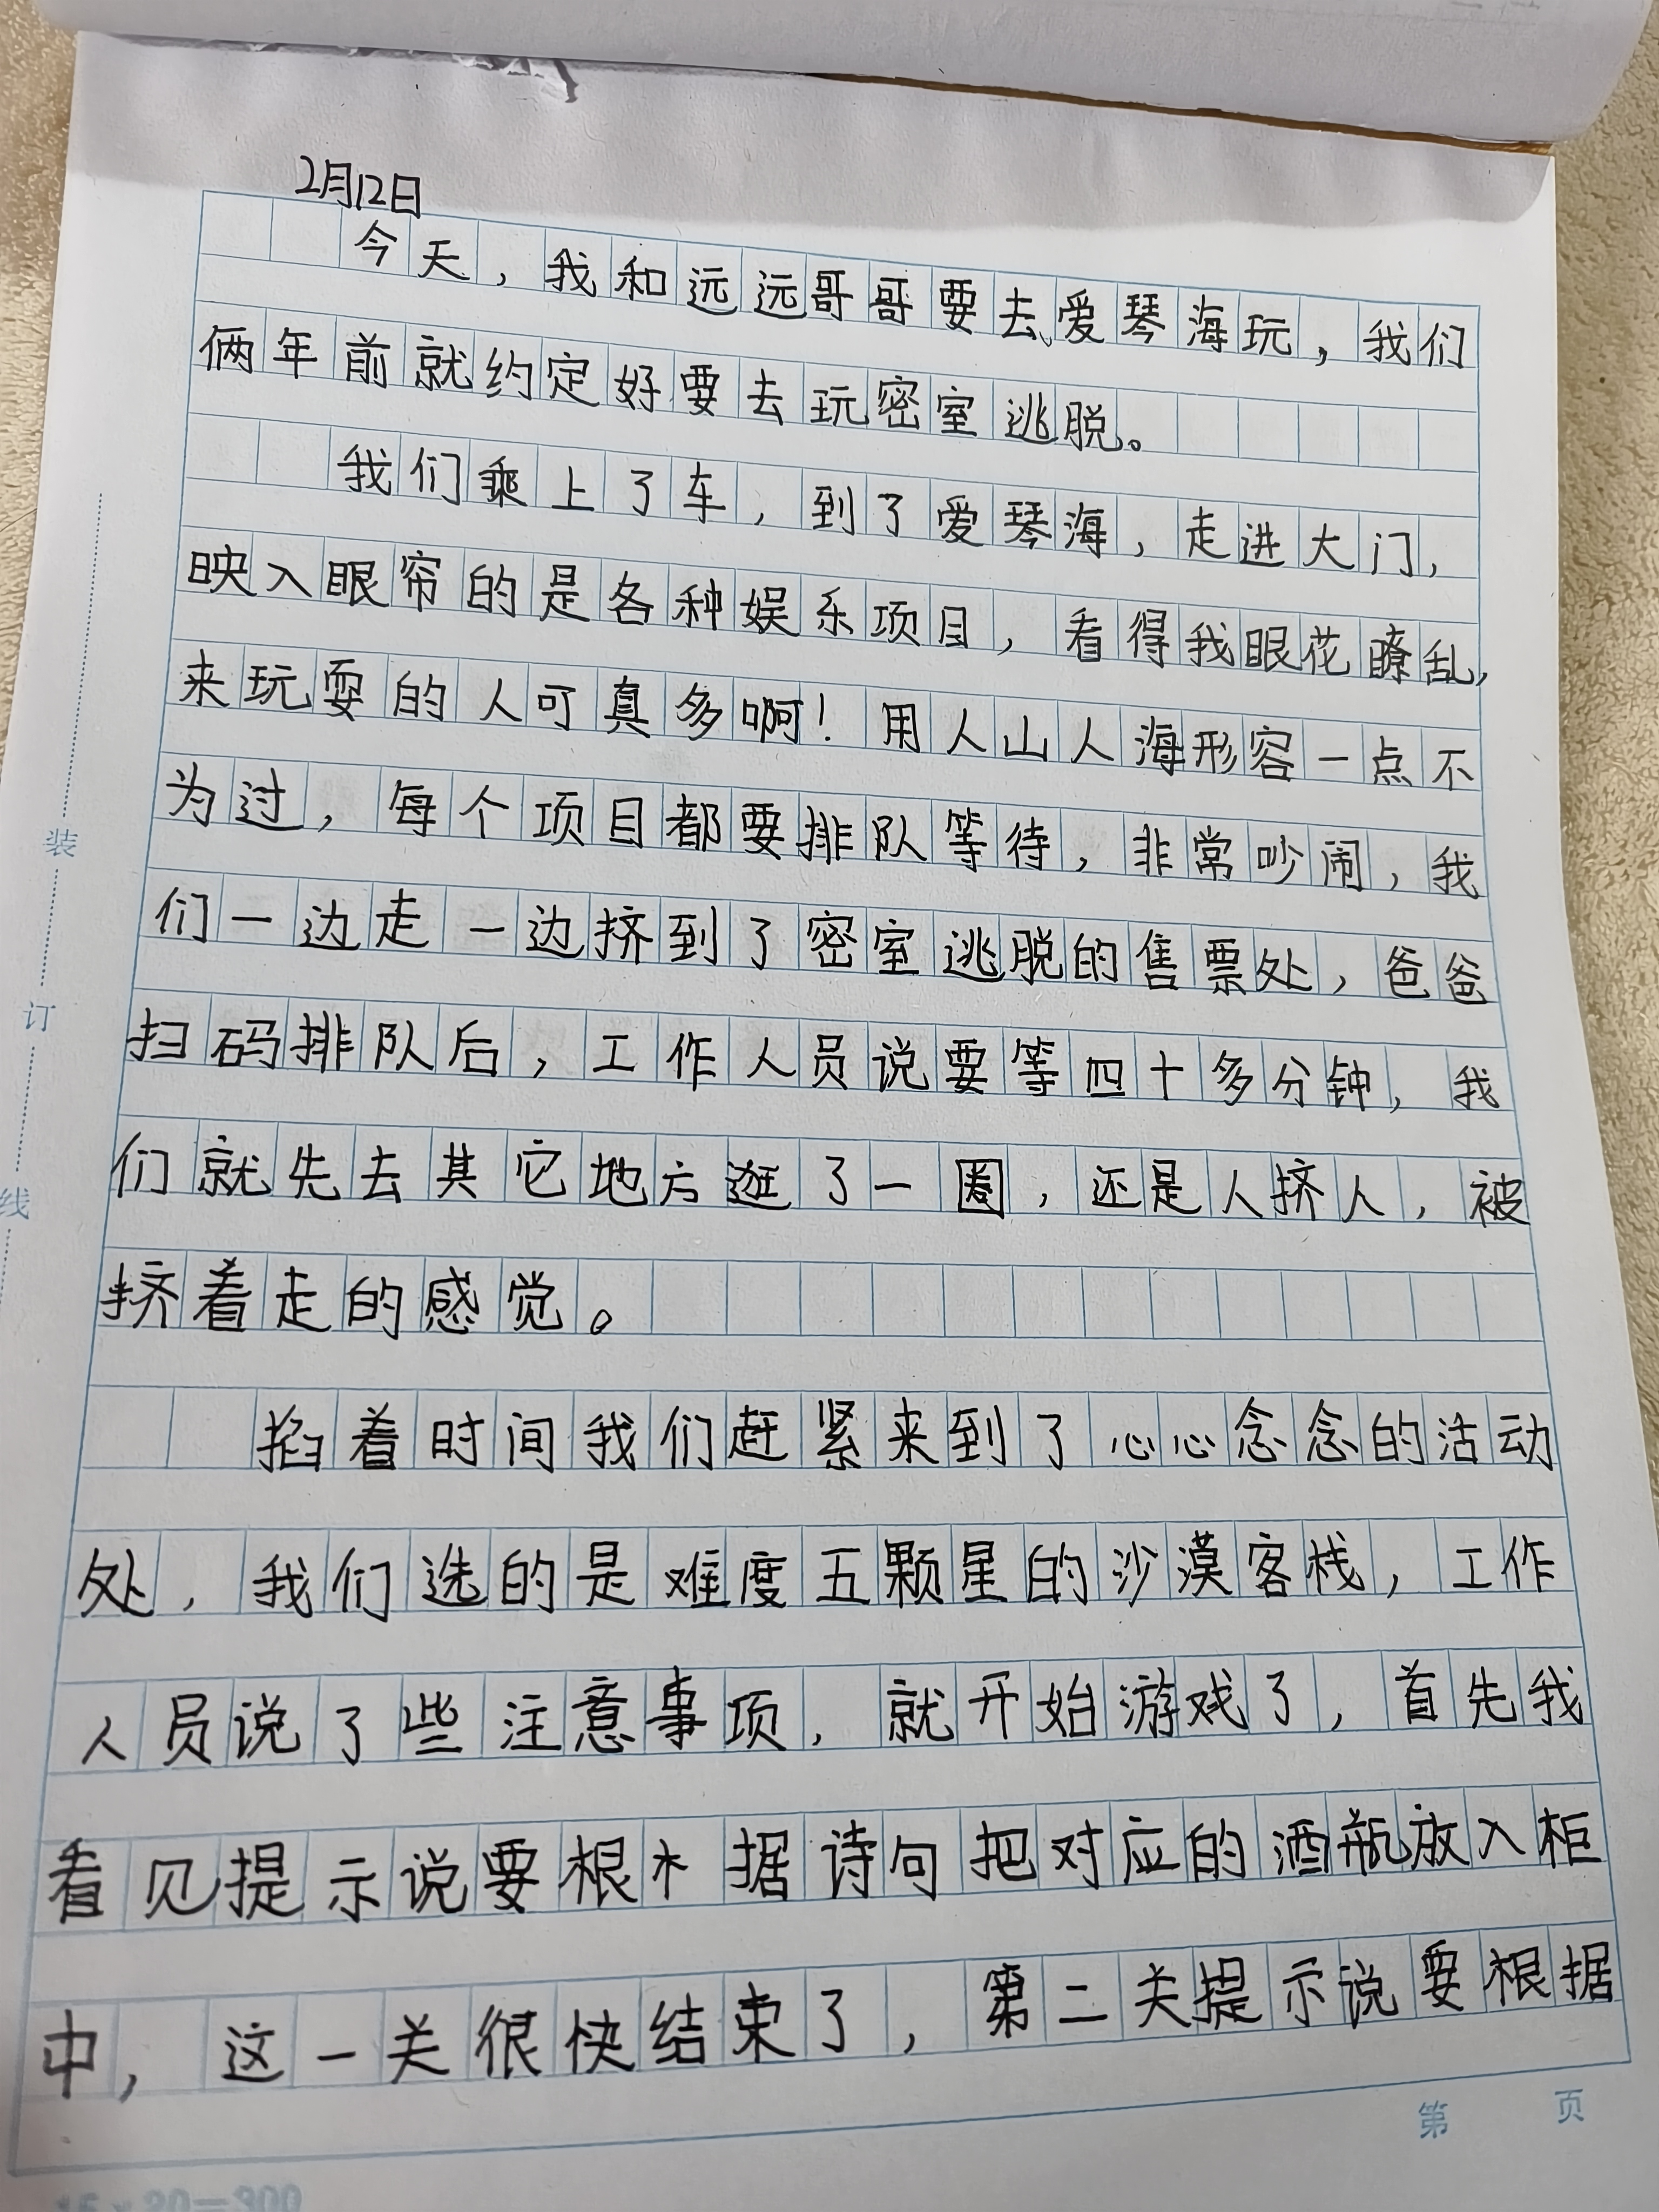 2月12日
今天，我和远远哥哥要去爱琴海玩，我们
俩年前就约定好要去玩密室逃脱。
我们乘上了车，到了爱琴海，走进大门，
映入眼帘的是各种娱乐项目，看得我眼花瞭乱，
来玩耍的人可真多啊！用人山人海形容一点不
为过，每个项目都要排队等待，非常吵闹，我
们一边走一边挤到了密室逃脱的售票处，爸爸
扫码排队后，工作人员说要等四十多分钟，我
们就先去其它地方逛了一圈，还是人挤人，被
挤着走的感觉。
掐着时间我们赶紧来到了心心念念的活动
处，我们选的是难度五颗星的沙漠客栈，工作
人员说了些注意事项，就开始游戏了，首先我
看见提示说要根木据诗句把对应的酒瓶放入柜
中，这一关很快结束了，第二关提示说要根据
装
订
线
第 页
15×20=300